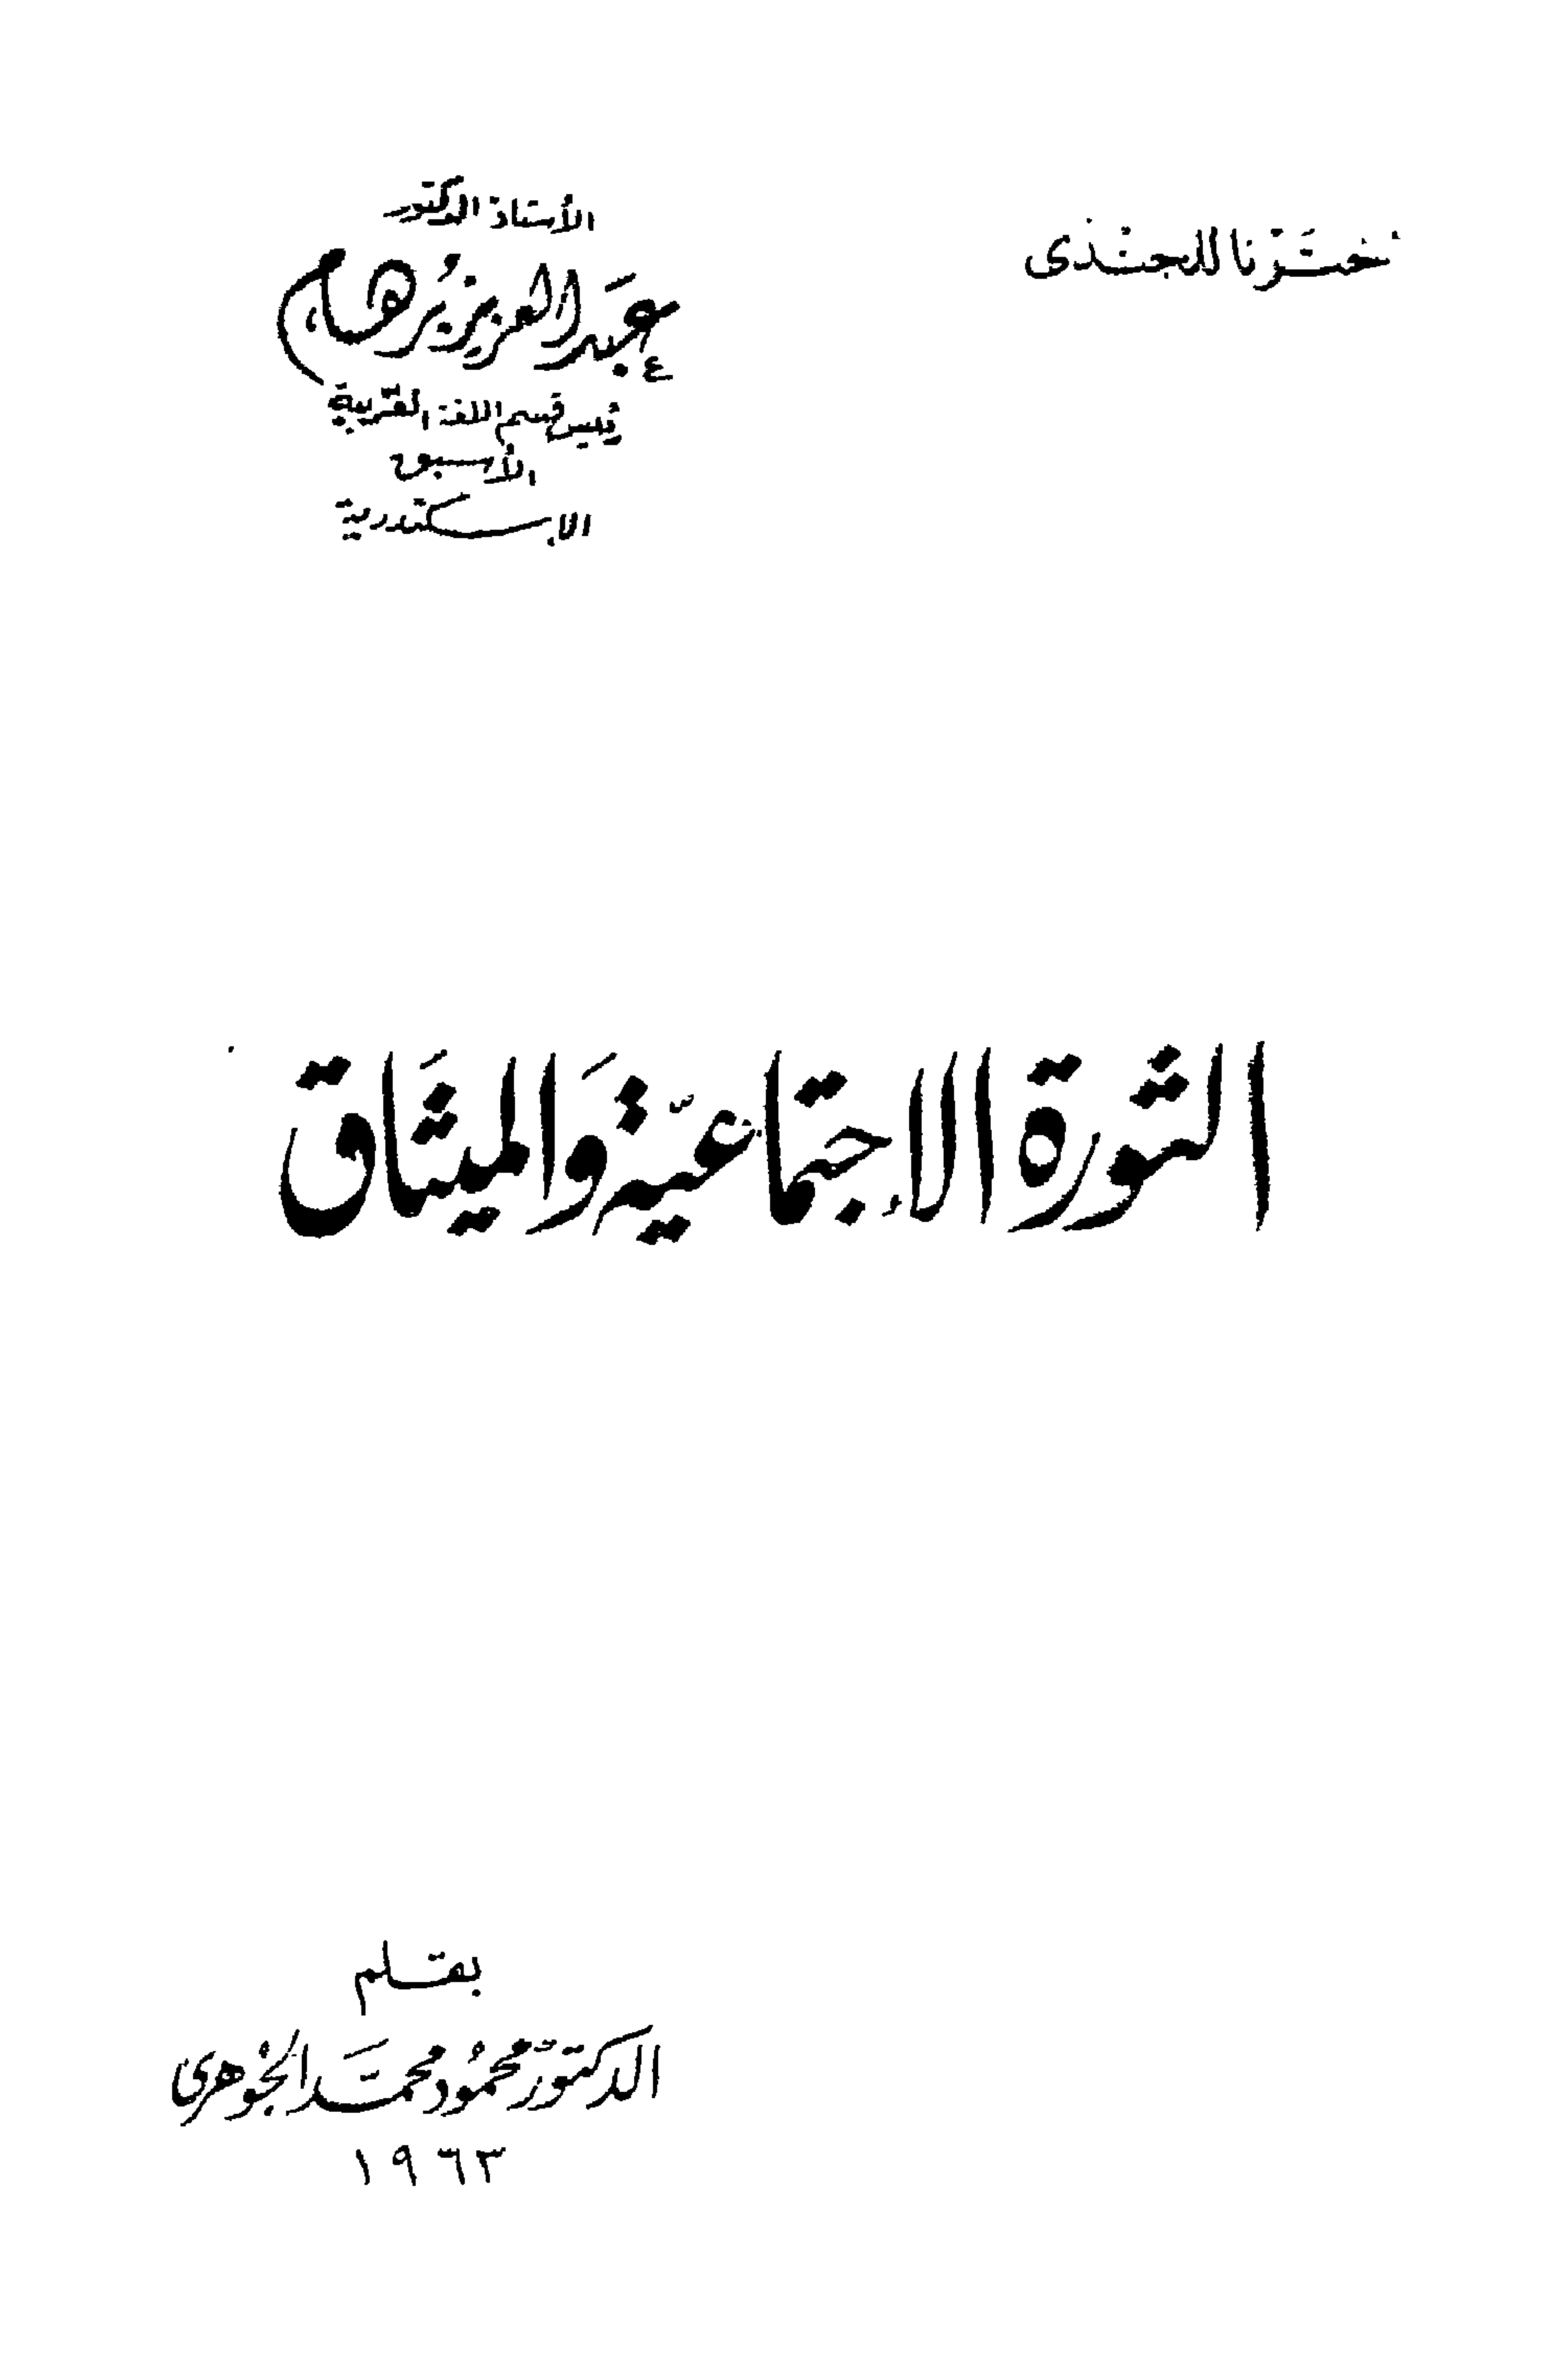 الأستاذ الدكتور
عبد العزيز برهام
رئيس قسم اللغة العربية
الأسبق
الإسكندرية
الثورة الاجتماعية والميثاق
بقلم
الدكتور محمود محمد الجوهري
١٩٦٣